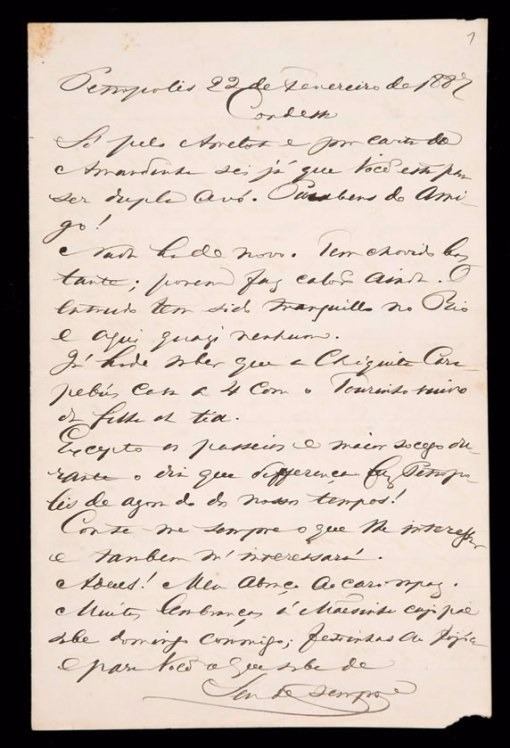 1
Petropolis 22 de Fevereiro de 1887
Condessa
Só pelo e por carta do
sei já que Você está para
ser dupla avó. Parabens do Ami-
go!
Nada ha de novo. Tem chovido bas-
tante; porem faz calor ainda. O
Entrudo tem sido tranquillo no Rio
e aqui quazi nenhum.
Já hade saber que a Chiquita Cara-
pebús casa a 4 com o Tourinho
da filha da tia.
Excepto os passeios e maior socego du-
rante o dia que differença faz Petropo-
lis de agora do dos nossos tempos!
Conte-me sempre o que lhe interessar
e tambem m'interessará.
Adeus! Meu abraço ao caro rapaz.
Muitas lembranças á Mãesinha cujo pae
sobe domingo commigo; festinhas ao
e para Você o que sabe de
Seu de sempre